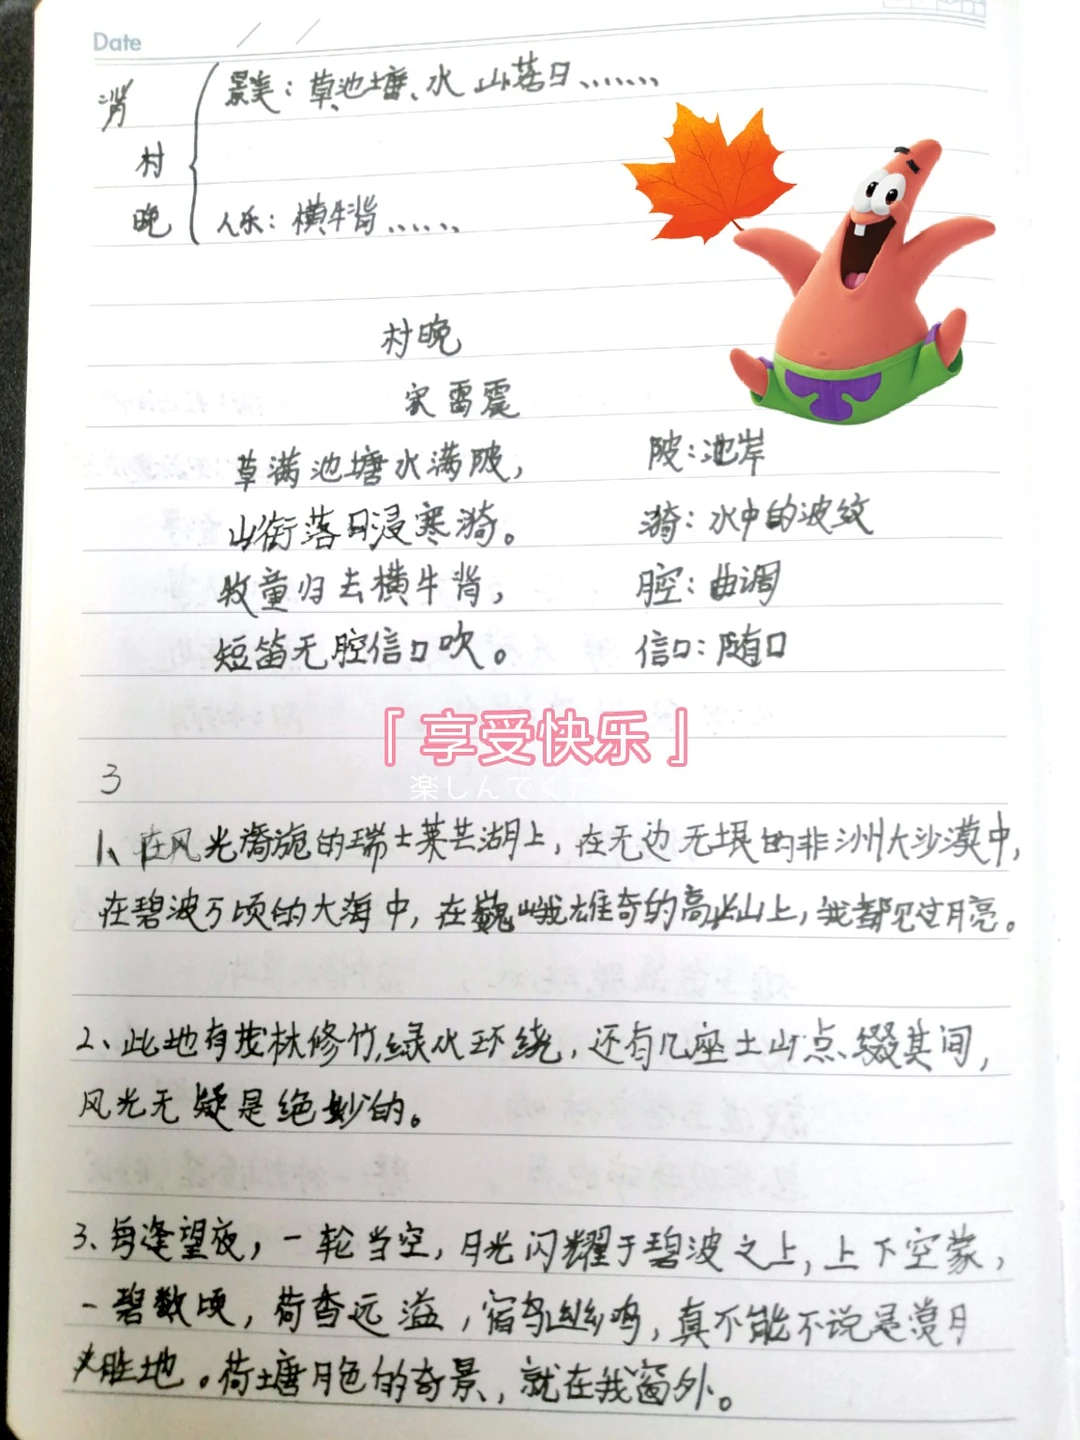 Date / /
背
景美：草、池塘、水 山、落日……
村
晚
人乐：横牛背……
村晚
宋 雷震
草满池塘水满陂， 陂：池岸
山衔落日浸寒漪。 漪：水中的波纹
牧童归去横牛背， 腔：曲调
短笛无腔信口吹。 信口：随口
「享受快乐」
楽しんでくだ
3
1、在风光旖旎的瑞士莱芒湖上，在无边无垠的非洲大沙漠中，
在碧波万顷的大海中，在巍峨雄奇的高山上，我都见过月亮。
2、此地有茂林修竹，绿水环绕，还有几座土山点缀其间，
风光无疑是绝妙的。
3、每逢望夜，一轮当空，月光闪耀于碧波之上，上下空蒙，
一碧数顷，荷香远溢，宿鸟幽鸣，真不能不说是赏月
胜地。荷塘月色的奇景，就在我窗外。